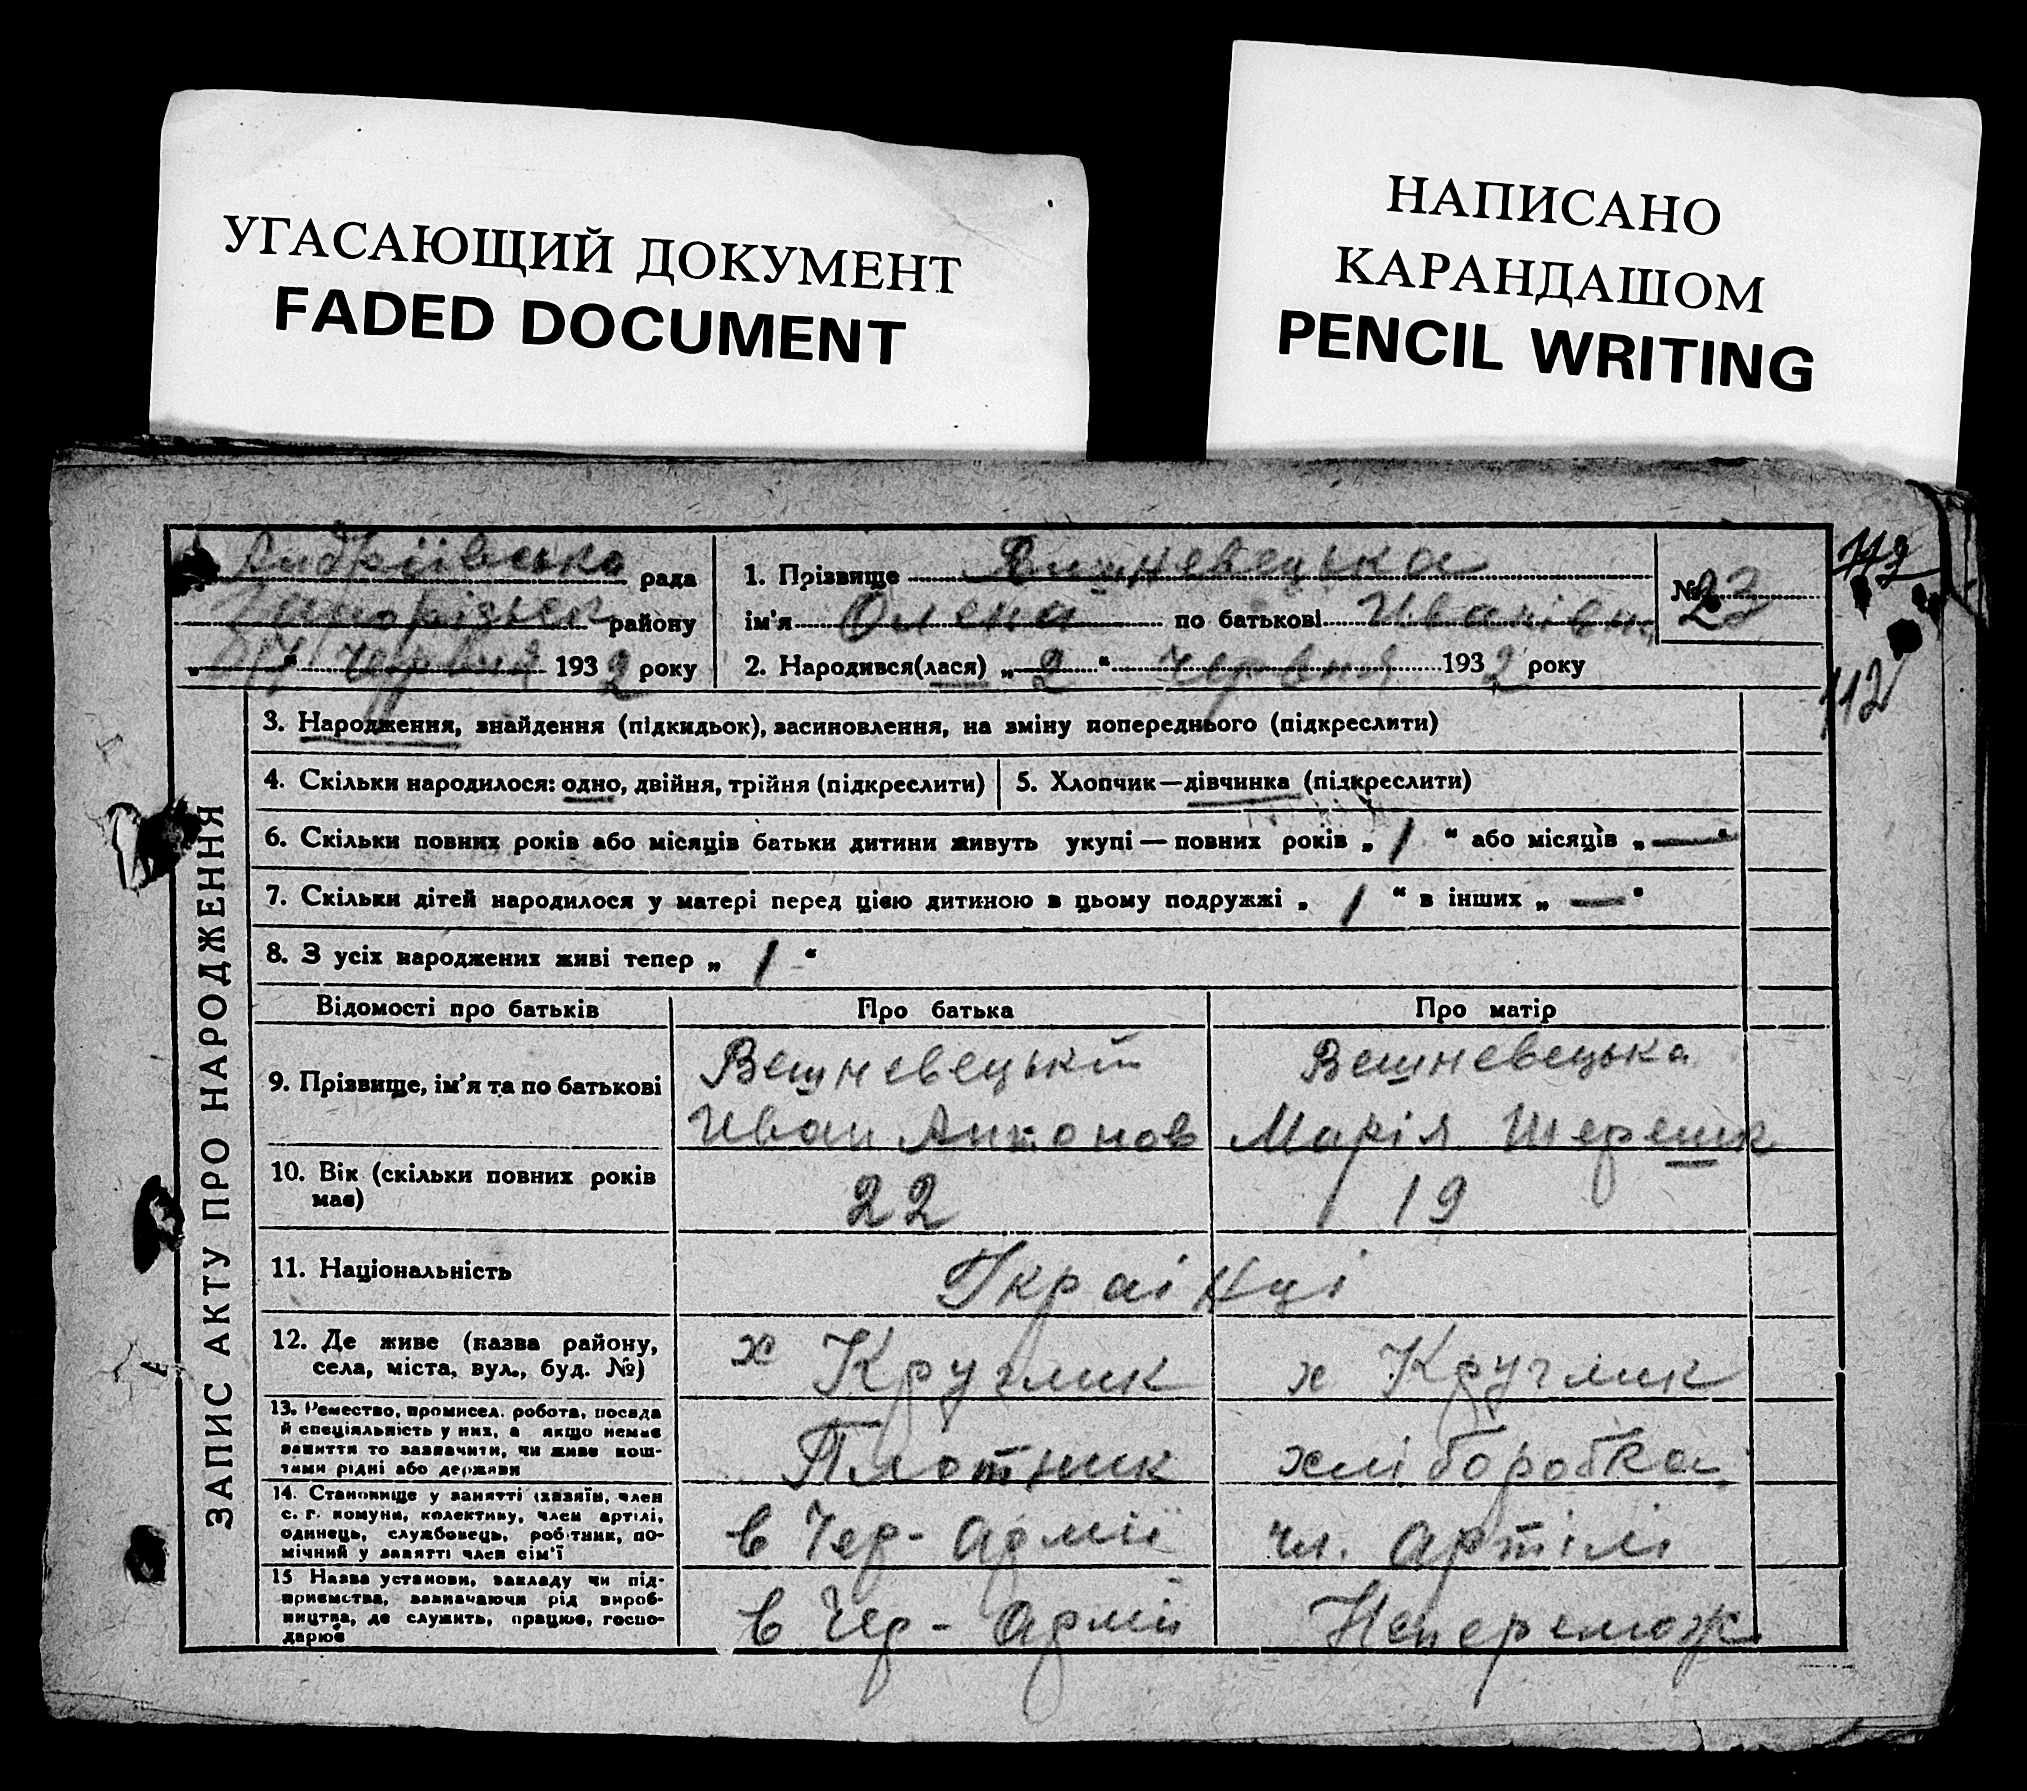 УГАСАЮЩИЙ ДОКУМЕНТ
FADED DOCUMENT
НАПИСАНО
КАРАНДАШОМ
PENCIL WRITING
Андріївсько рада
району
червня 1932 року
1. Прізвище Вишневецька
ім'я Олена по батькові Иванівн
2. Народився(лася) „2“ червня 1932 року
№ 23
112
112
ЗАПИС АКТУ ПРО НАРОДЖЕННЯ
3. Народження, знайдення (підкидьок), засиновлення, на зміну попереднього (підкреслити)
4. Скільки народилося: одно, двійня, трійня (підкреслити)
5. Хлопчик—дівчинка (підкреслити)
6. Скільки повних років або місяців батьки дитини живуть укупі — повних років „ 1 “ або місяців „ — “
7. Скільки дітей народилося у матері перед цією дитиною в цьому подружжі „ 1 “ в інших „ — “
8. З усіх народжених живі тепер „ 1 “
Відомості про батьків Про батька Про матір
9. Прізвище, ім'я та по батькові
Вешневецький
Иван Антонов
Вешневецька
Марія Терешк
10. Вік (скільки повних років
має)
22
19
11. Національність
Українці
12. Де живе (назва району,
села, міста, вул., буд. №)
х Круглик
х Круглик
13. Ремество, промисел. робота, посада
й спеціяльність у них, а якщо немає
заняття то зазначити, чи живе кош-
тами рідні або держави
Плотник
хліборобка
14. Становище у занятті (хазяїн, член
с. г. комуни, колективу, член артілі,
одинець, службовець, робітник, по-
мічний у занятті член сім'ї
в Чер-армії
чл. артілі
15 Назва установи, закладу чи під-
приємства, зазначаючи рід вироб-
ництва, де служить, працює, госпо-
дарює
в Чер-армії
Неперемож